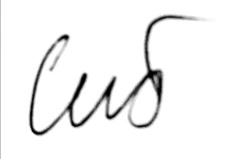 Сиб